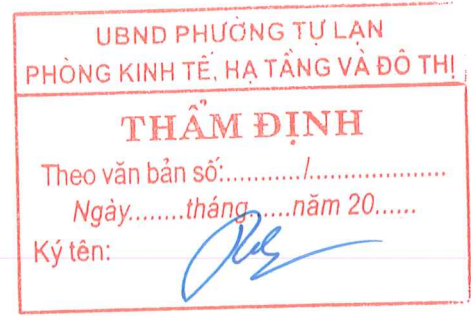 UBND PHƯỜNG TỰ LẠN
PHÒNG KINH TẾ, HẠ TẦNG VÀ ĐÔ THỊ
THẨM ĐỊNH
Theo văn bản số:.........../...................
Ngày........tháng......năm 20......
Ký tên: